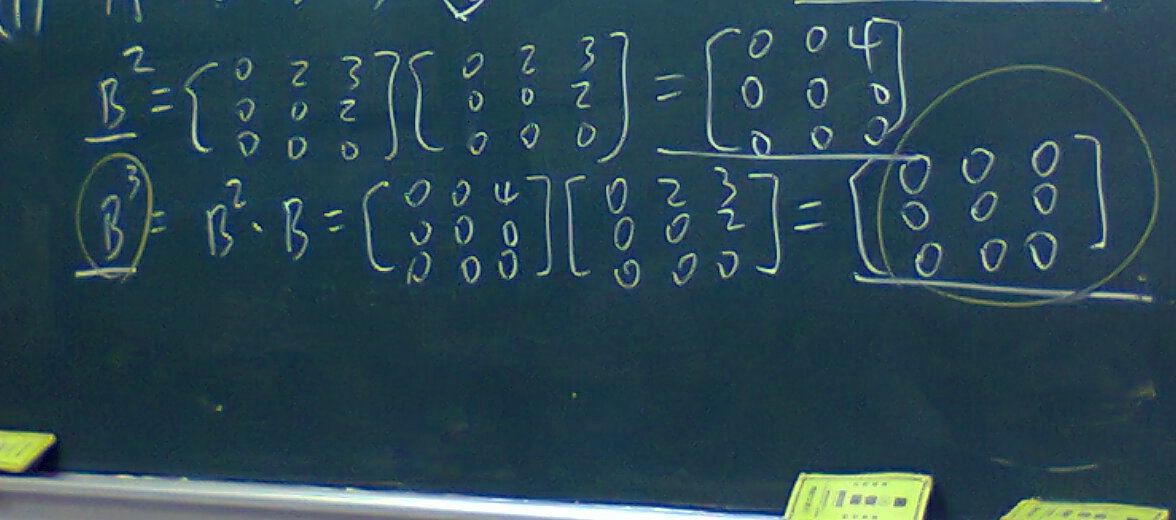 B² = [0 2 3; 0 0 2; 0 0 0] [0 2 3; 0 0 2; 0 0 0] = [0 0 4; 0 0 0; 0 0 0]
B³ = B² · B = [0 0 4; 0 0 0; 0 0 0] [0 2 3; 0 0 2; 0 0 0] = [0 0 0; 0 0 0; 0 0 0]